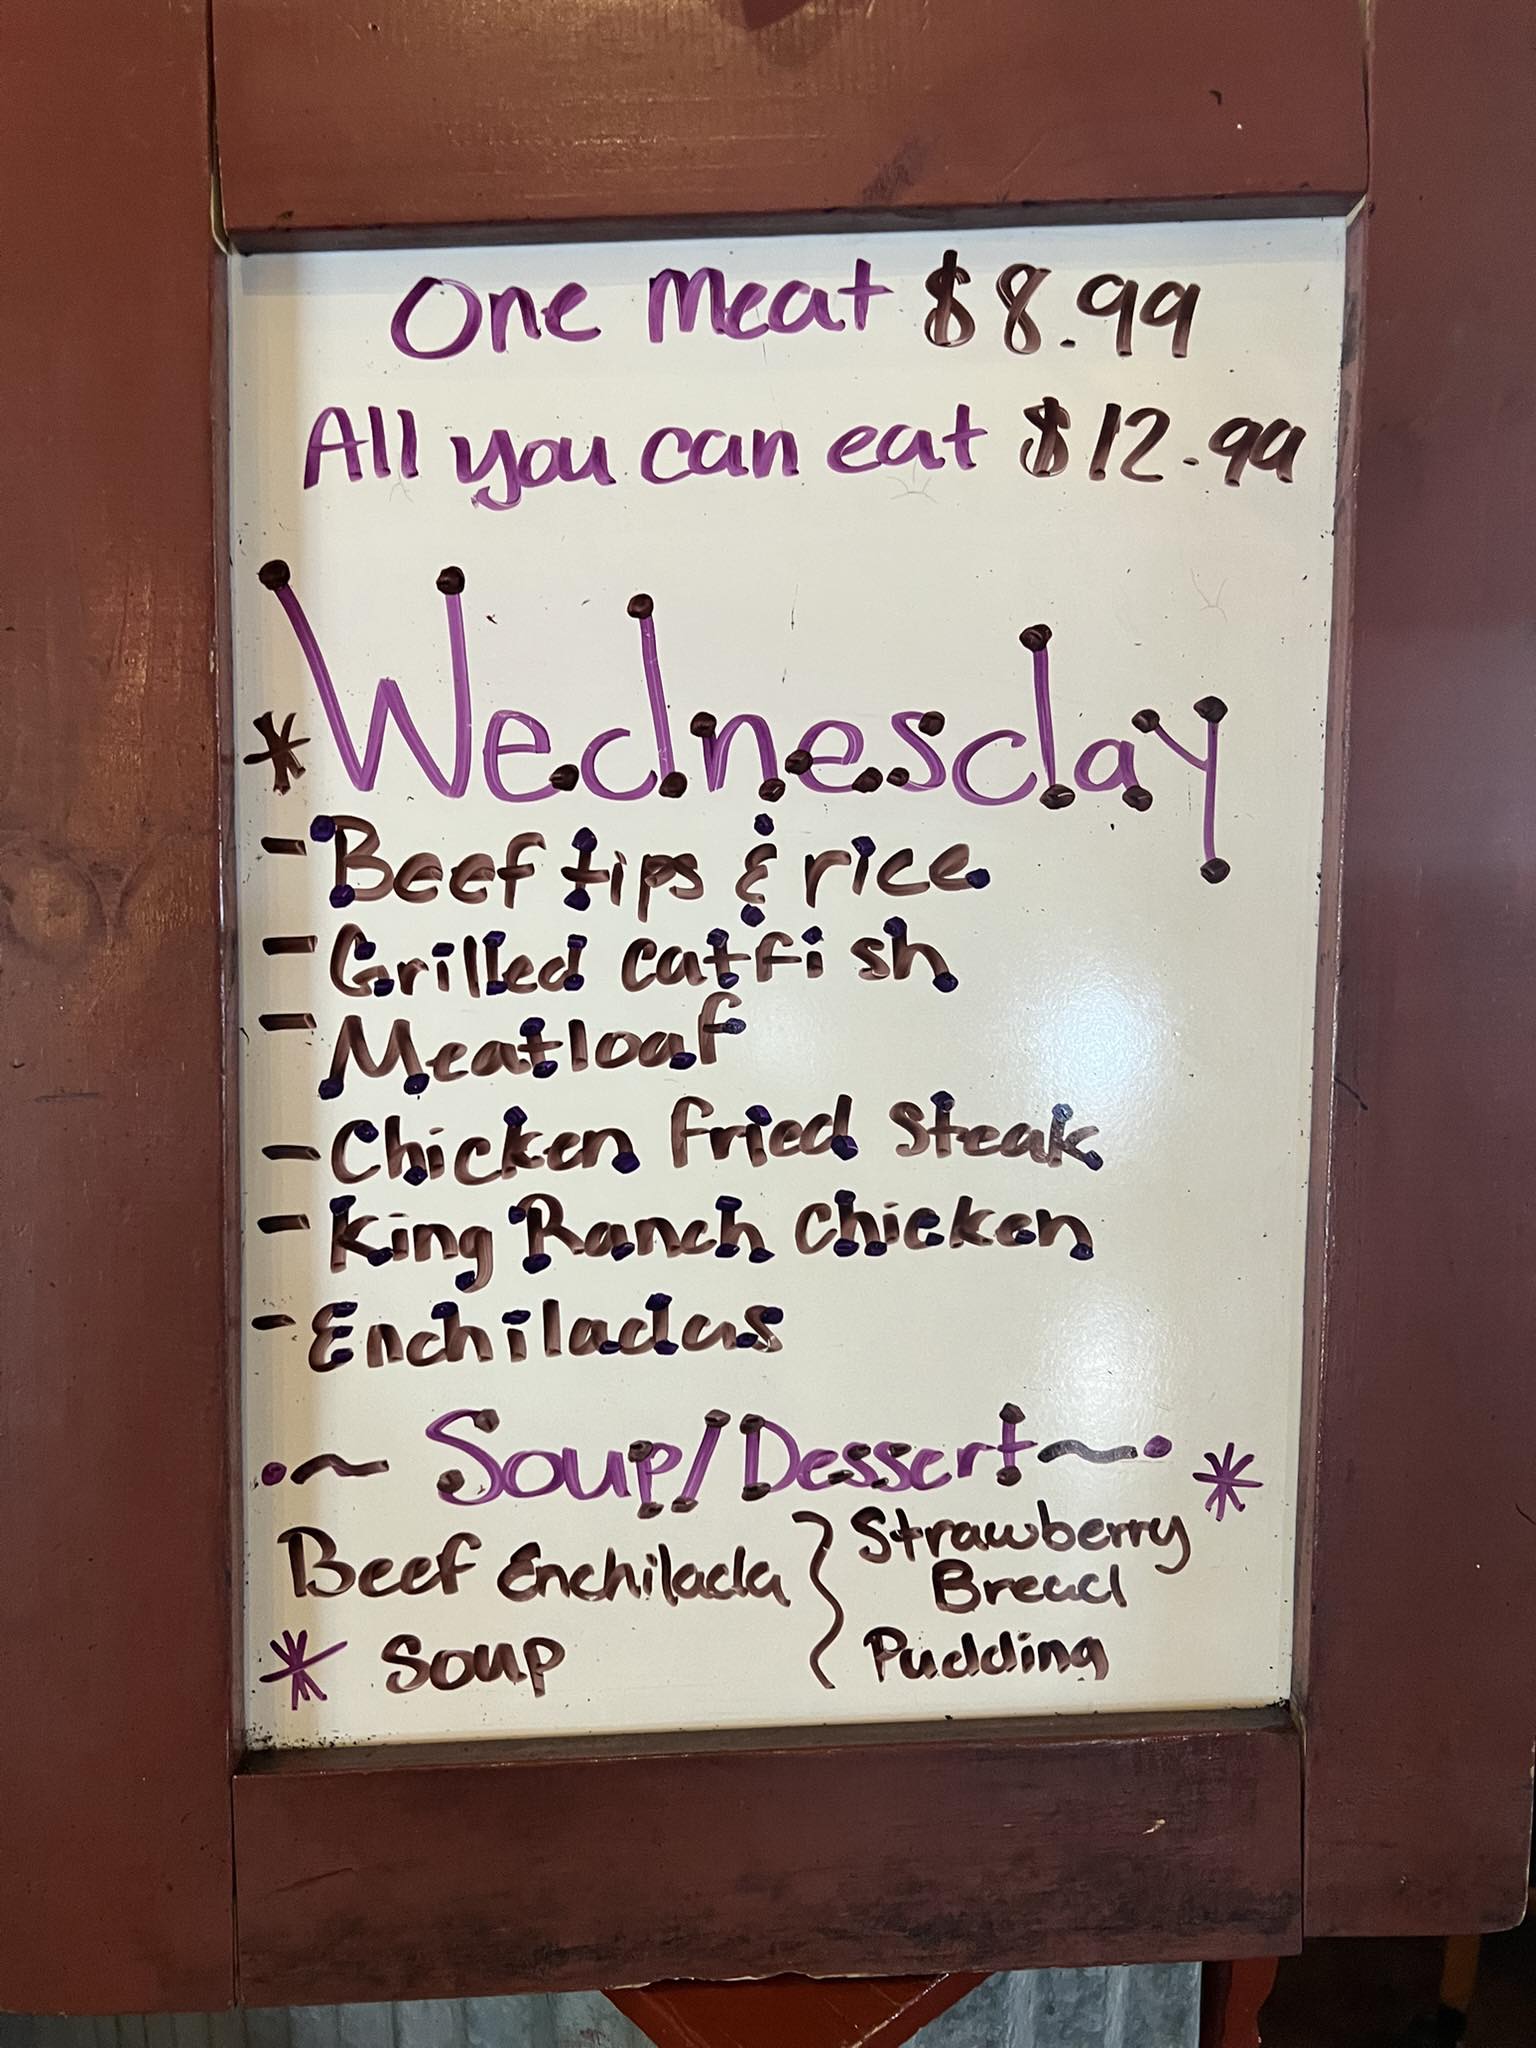 One Meat $8.99
All you can eat $12.99
* Wednesday
- Beef tips & rice
- Grilled catfish
- Meatloaf
- Chicken fried steak
- King Ranch Chicken
- Enchiladas
•~ Soup/Dessert ~• *
Beef Enchilada
* Soup
} Strawberry
Bread
Pudding